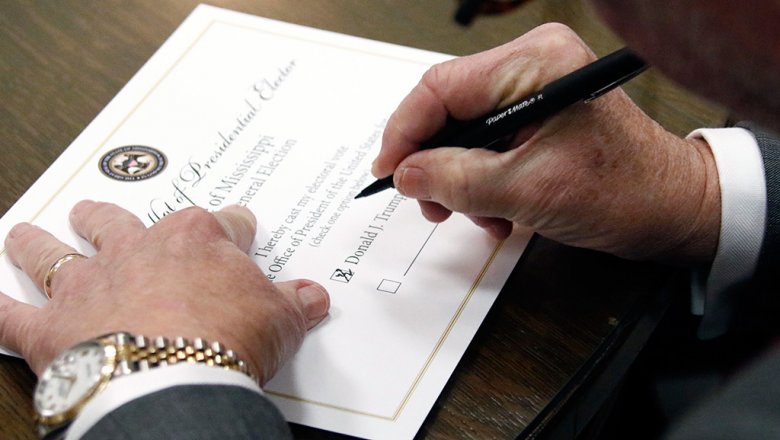 of Presidential Elector
of Mississippi
General Election
I hereby cast my electoral vote
Office of President of the United States for
(check one option below
Donald J. Trump
Paper Mate